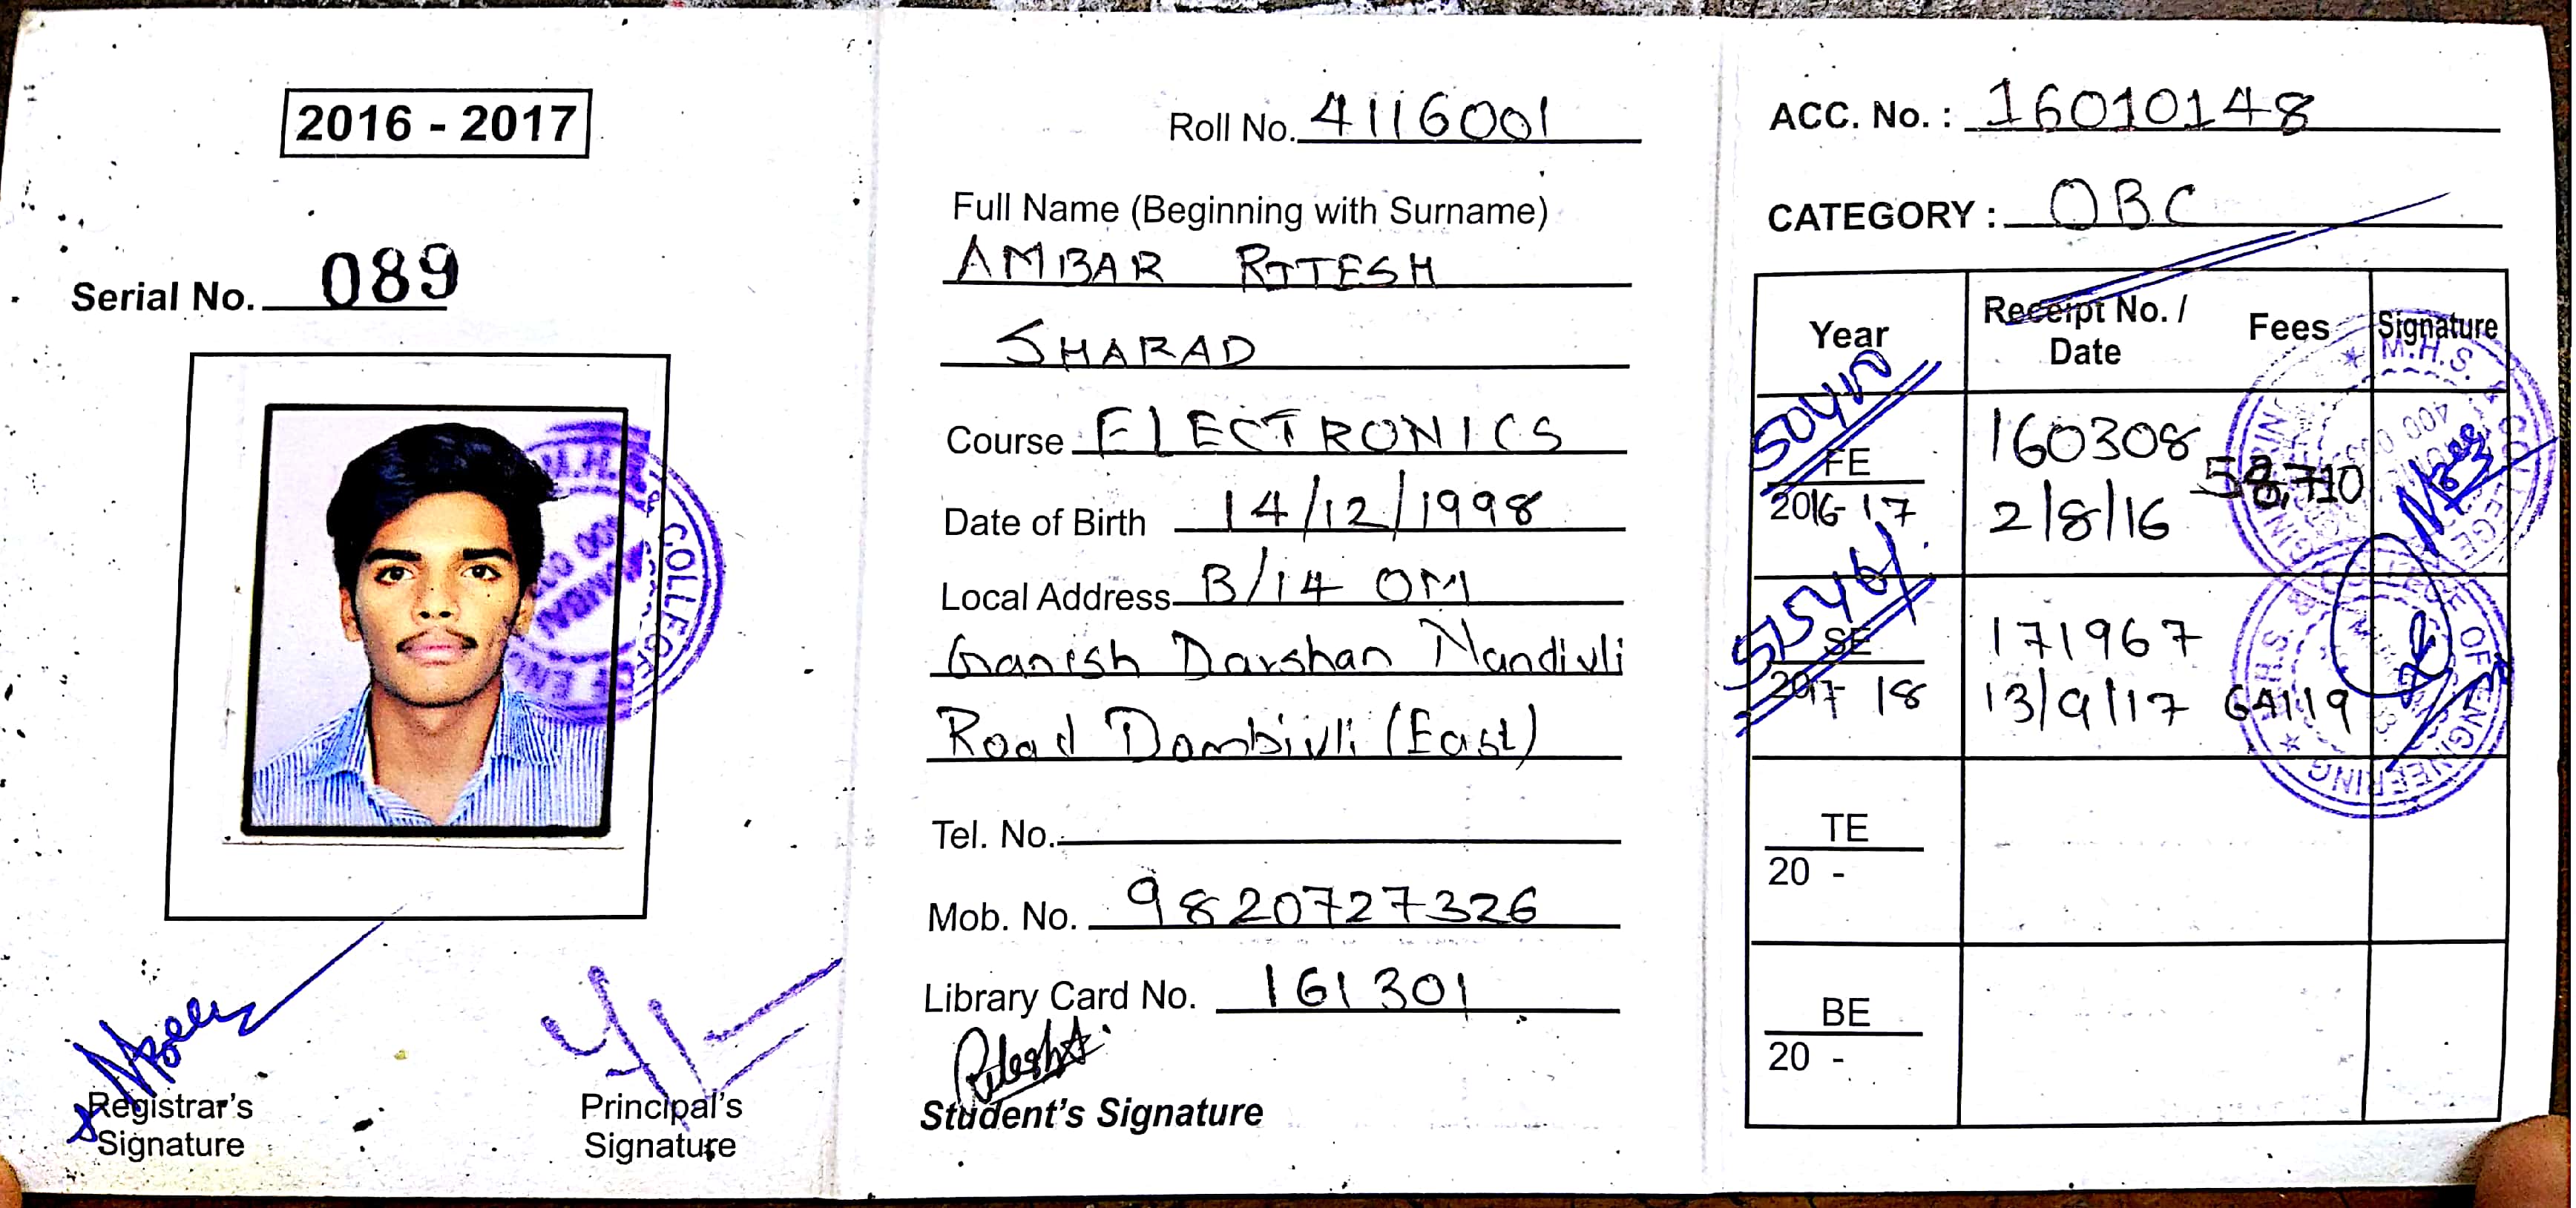 2016 - 2017
Serial No. 089
M.H.S.S. COLLEGE OF ENG
Registrar's
Signature
Principal's
Signature
Roll No. 4116001
Full Name (Beginning with Surname)
AMBAR RITESH
SHARAD
Course ELECTRONICS
Date of Birth 14/12/1998
Local Address B/14 OM
Ganesh Darshan Nandivli
Road Dombivli (East)
Tel. No.
Mob. No. 9820727326
Library Card No. 161301
Ritesh
Student's Signature
ACC. No. : 16010148
CATEGORY : OBC
Year Receipt No. / Date Fees Signature
FE
2016-17
160308
2/8/16
SE
2017-18
171967
13/9/17
TE
20 -
BE
20 -